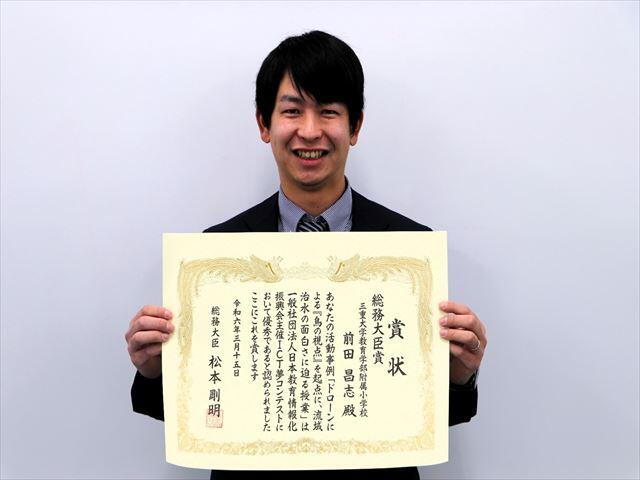 賞状
総務大臣賞
三重大学教育学部附属小学校
前田昌志殿
あなたの活動事例「ドローンに
よる『鳥の視点』を起点に、流域
治水の面白さに迫る授業」は
一般社団法人日本教育情報化
振興会主催ICT夢コンテストに
おいて優秀であると認められました
ここにこれを賞します
令和六年三月十五日
総務大臣 松本剛明